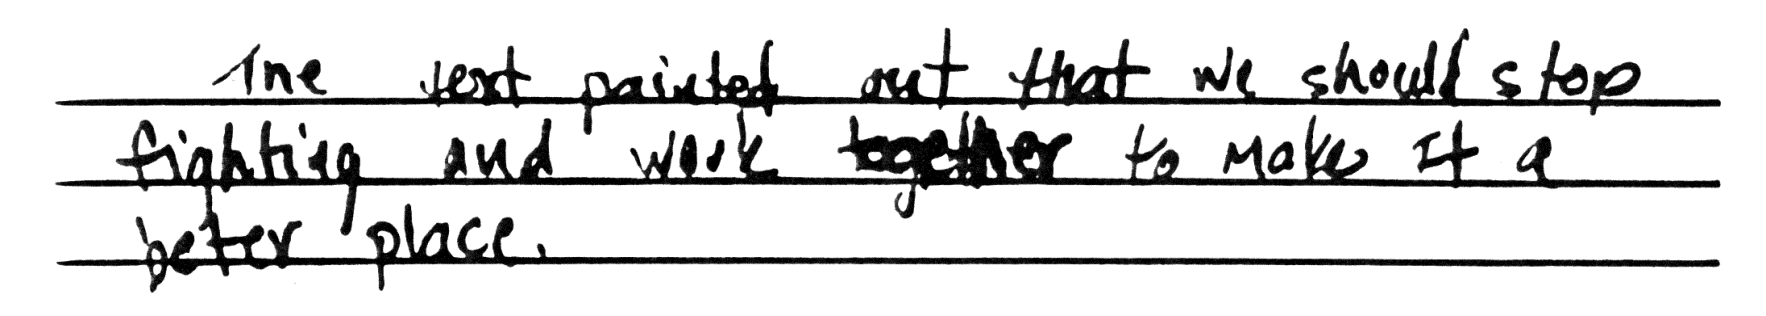 The text pointed out that we should stop
fighting and work together to make it a
beter place.